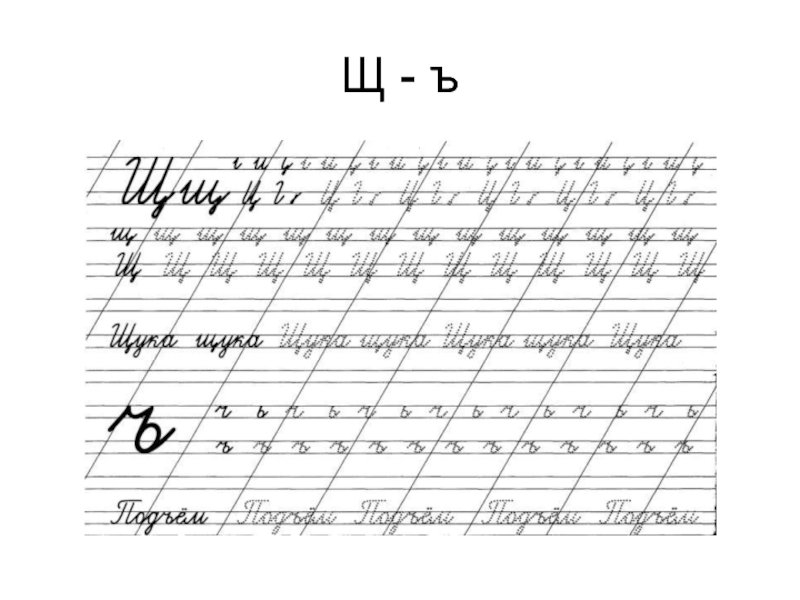 Щ - ъ
Щ щ
щ щ щ щ щ щ щ щ щ щ щ щ щ щ
Щ Щ Щ Щ Щ Щ Щ Щ Щ Щ Щ Щ Щ
Щука щука Щука щука Щука щука Щука
ъ
ъ ъ ъ ъ ъ ъ ъ ъ ъ ъ ъ ъ ъ
Подъём Подъём Подъём Подъём Подъём